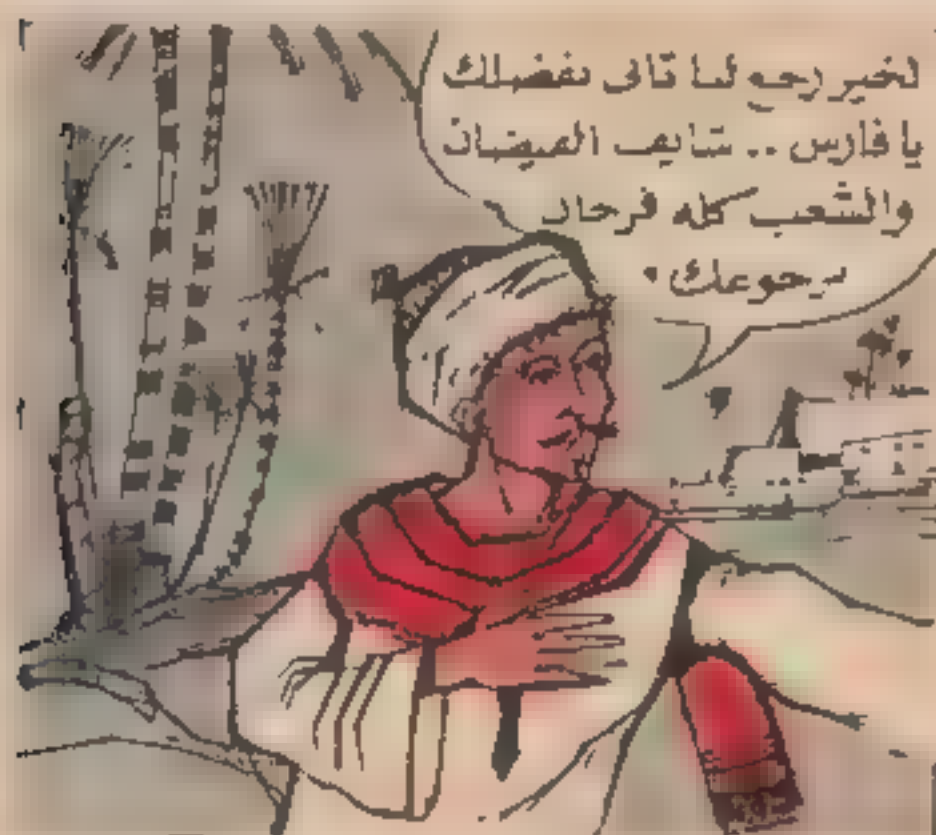 لخير رجع لنا تانى بفضلك
يا فارس .. شايف الفيضان
والشعب كله فرحان
برجوعك